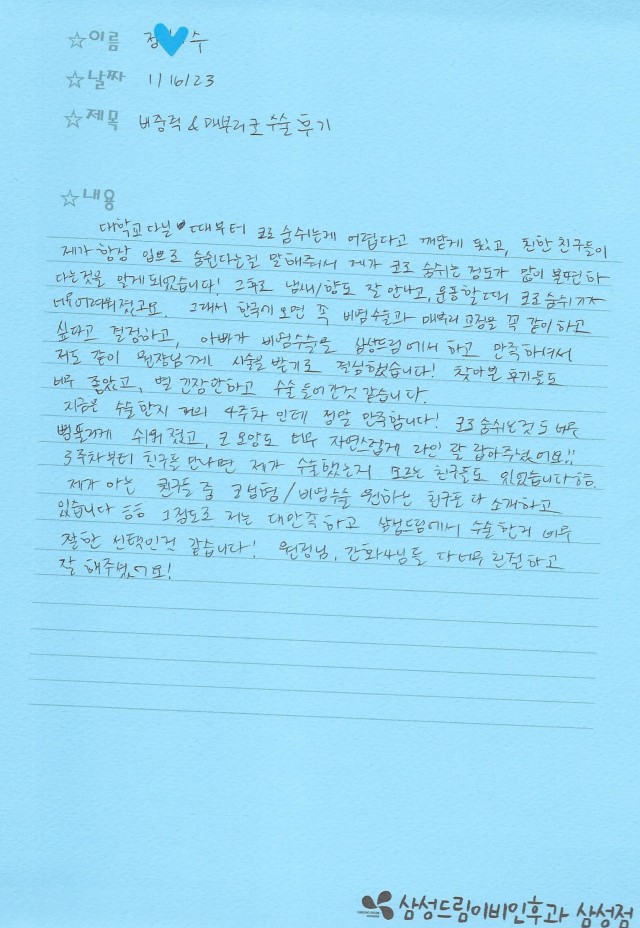 ☆이름 정 수
☆날짜 1/16/23
☆제목 비중격 & 매부리코 수술 후기
☆내용
대학교 다닐 때부터 코로 숨쉬는게 어렵다고 깨닫게 됬고, 친한 친구들이
제가 항상 입으로 숨쉰다는걸 말해줘서 제가 코로 숨쉬는 정도가 많이 불편하
다는것을 알게 되었습니다! 그후로 냄새/향도 잘 안나고, 운동할때 코로 숨쉬기가
너무 어려워졌고요. 그래서 한국에 오면 꼭 비염수술과 매부리 교정을 꼭 같이 하고
싶다고 결정하고, 아빠가 비염수술을 삼성드림에서 하고 만족하셔서
저도 같이 원장님께 시술을 받기로 결심했습니다! 찾아본 후기들도
너무 좋았고, 별 긴장안하고 수술 들어간것 같습니다.
지금은 수술한지 거의 4주차 인데 정말 만족합니다! 코로 숨쉬는것도 너무
쉬워졌고, 코 모양도 너무 자연스럽게 라인 잘 잡아주셨어요!!
3주차부터 친구들 만나면 제가 수술했는지 모르는 친구들도 있었습니다 ㅎㅎ
제가 아는 친구들 중 코성형/비염수술 원하는 친구도 다 소개하고
있습니다 ㅎㅎ 그정도로 저는 대만족하고 삼성드림에서 수술한거 너무
잘한 선택인것 같습니다! 원장님, 간호사님들 다 너무 친절하고
잘 해주셨어요!
삼성드림이비인후과 삼성점